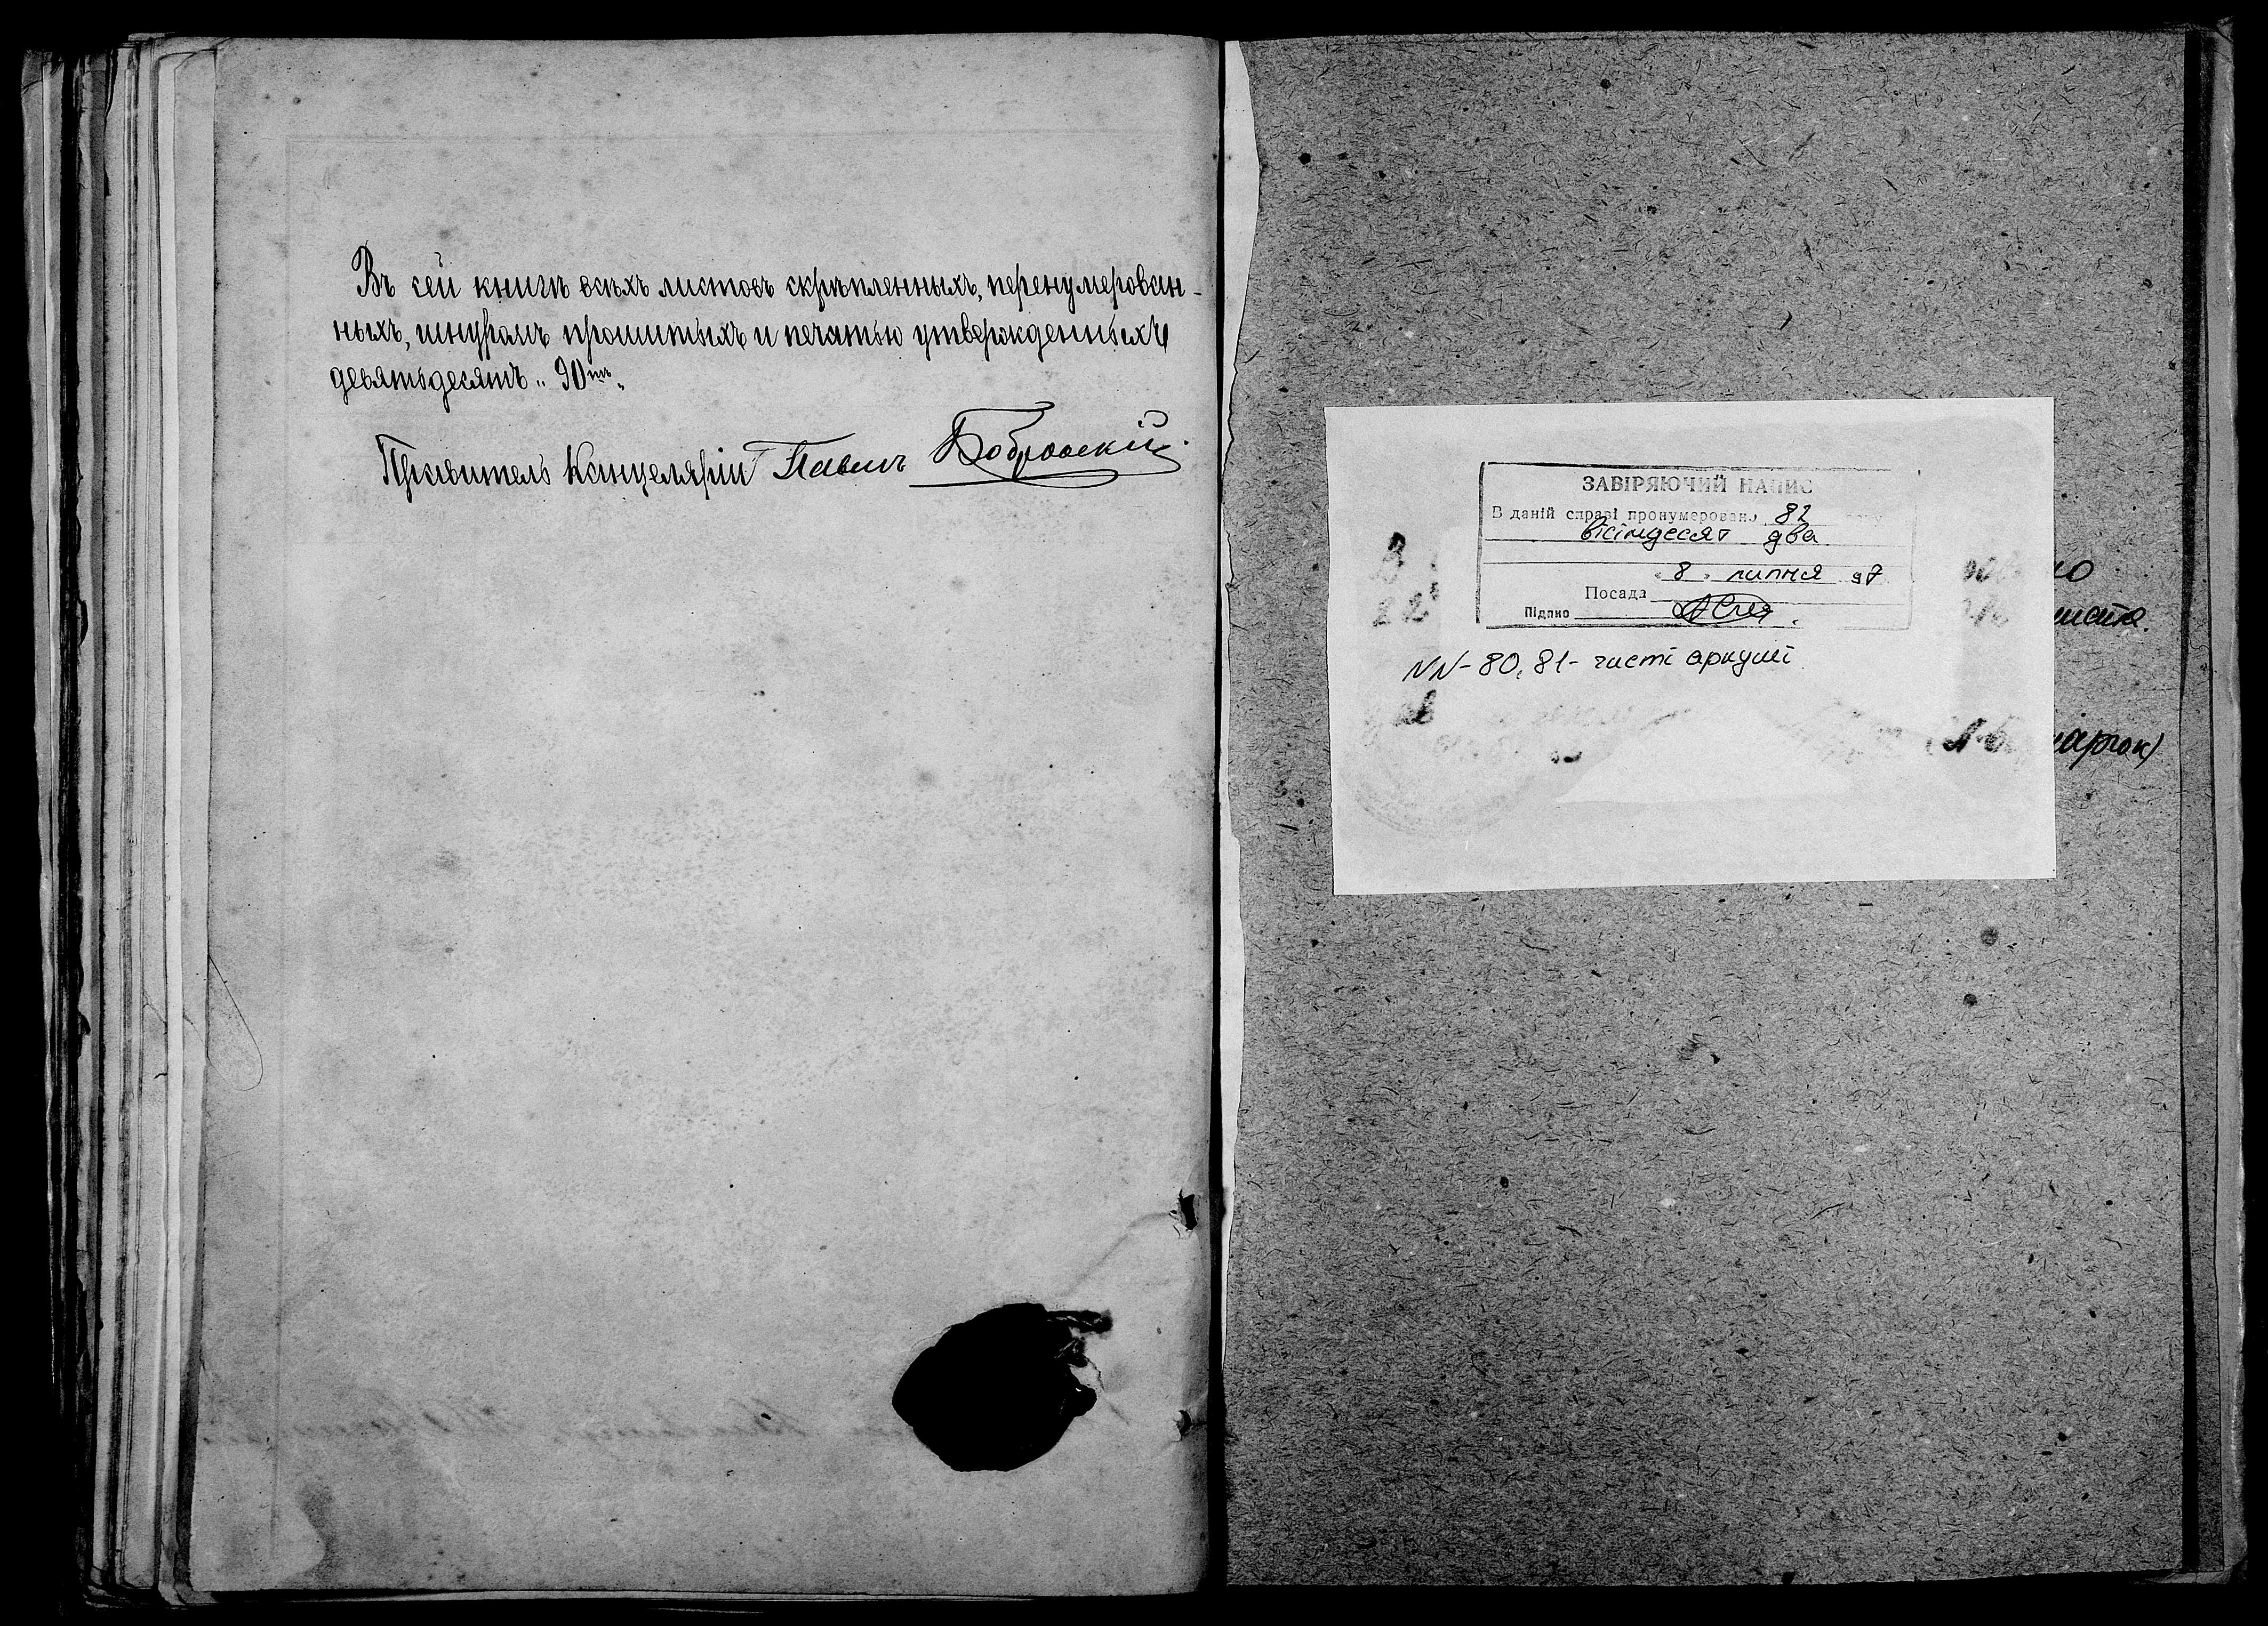 Въ сей книгѣ всѣхъ листовъ скрѣпленныхъ, перенумерован-
ныхъ, шнуромъ прошитыхъ и печатью утвержденныхъ
девятьдесятъ „90тъ„
Правитель Канцеляріи Павелъ Бобровскій
ЗАВІРЯЮЧИЙ НАПИС
В даній справі пронумеровано 82
вісімдесят два
"8" липня 97
Посада
Підпис
NN-80,81- чисті аркуші